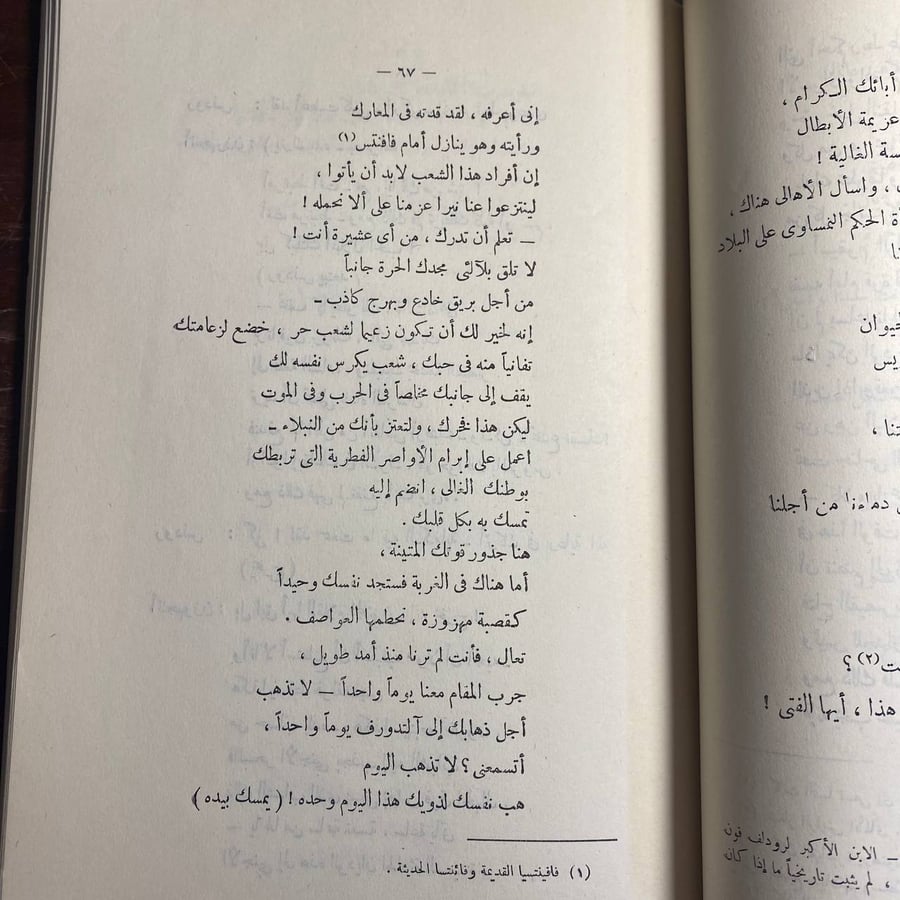 — ٦٧ —
إنى أعرفه ، لقد قدته فى المعارك
ورأيته وهو ينازل أمام فافنتس(١)
إن أفراد هذا الشعب لابد أن يأتوا ،
لينتزعوا عنا نيرا عزمنا على ألا نحمله !
— تعلم أن تدرك ، من أى عشيرة أنت !
لا تلق بلآلئ مجدك الحرة جانباً
من أجل بريق خادع وبهرج كاذب –
إنه لخير لك أن تكون زعيما لشعب حر ، خضع لزعامتك
تفانياً منه فى حبك ، شعب يكرس نفسه لك
يقف إلى جانبك مخلصاً فى الحرب وفى الموت
ليكن هذا فخرك ، ولتعتز بأنك من النبلاء –
اعمل على إبرام الأواصر الفطرية التى تربطك
بوطنك الغالى ، انضم إليه
تمسك به بكل قلبك .
هنا جذور قوتك المتينة ،
أما هناك فى الغربة فستجد نفسك وحيداً
كقصبة مهزوزة ، تحطمها العواصف .
تعال ، فأنت لم ترنا منذ أمد طويل ،
جرب المقام معنا يوماً واحداً — لا تذهب
أجل ذهابك إلى آلتدورف يوماً واحداً ،
أتسمعنى ؟ لا تذهب اليوم
هب نفسك لذويك هذا اليوم وحده ! ( يمسك بيده )
(١) فافينتسيا القديمة وفائنتسا الحديثة .
أبائك الكرام ،
عزيمة الأبطال
الغالية !
، واسأل الأهالى هناك ،
الحكم النمساوى على البلاد
دماءنا من أجلنا
(٢) ؟
هذا ، أيها الفتى !
– الابن الأكبر لرودلف فون
، لم يثبت تاريخياً ما إذا كان